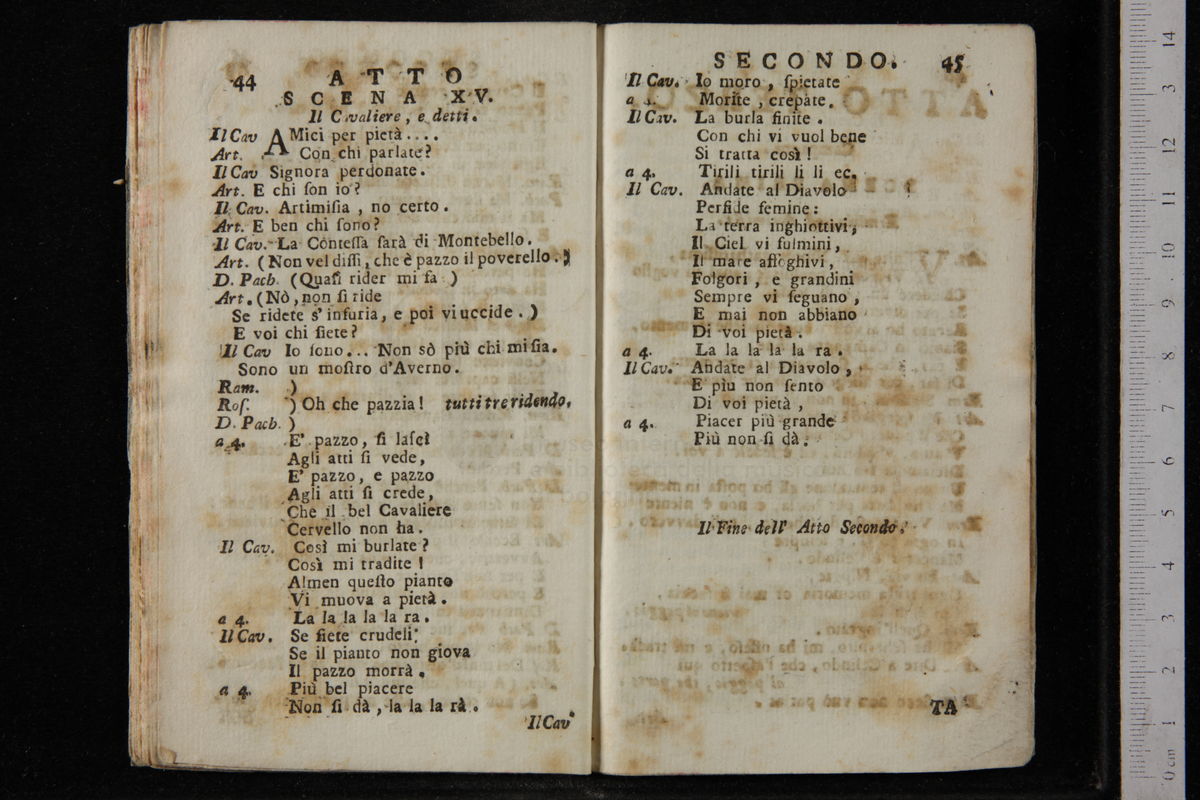 44 ATTO
SCENA XV.
Il Cavaliere, e detti.
Il Cav AMici per pietà....
Art. Con chi parlate?
Il Cav Signora perdonate.
Art. E chi ſon io?
Il Cav. Artimiſia, no certo.
Art. E ben chi ſono?
Il Cav. La Conteſſa ſarà di Montebello.
Art. (Non vel diſſi, che è pazzo il poverello.)
D. Pach. (Quaſi rider mi fa)
Art. (Nò, non ſi ride
Se ridete s'infuria, e poi vi uccide.)
E voi chi ſiete?
Il Cav Io ſono... Non sò più chi mi ſia.
Sono un moſtro d'Averno.
Ram. )
Roſ. ) Oh che pazzia! tutti tre ridendo.
D. Pach. )
a 4. E' pazzo, ſi laſci
Agli atti ſi vede,
E' pazzo, e pazzo
Agli atti ſi crede,
Che il bel Cavaliere
Cervello non ha.
Il Cav. Così mi burlate?
Così mi tradite!
Almen queſto pianto
Vi muova a pietà.
a 4. La la la la la ra.
Il Cav. Se ſiete crudeli,
Se il pianto non giova
Il pazzo morrà.
a 4. Più bel piacere
Non ſi dà, la la la rà.
Il Cav
SECONDO. 45
Il Cav. Io moro, ſpietate
a 4. Morite, crepate.
Il Cav. La burla finite.
Con chi vi vuol bene
Si tratta così!
a 4. Tirili tirili li li ec.
Il Cav. Andate al Diavolo
Perfide femine:
La terra inghiottivi,
Il Ciel vi fulmini,
Il mare affoghivi,
Folgori, e grandini
Sempre vi ſeguano,
E mai non abbiano
Di voi pietà.
a 4. La la la la la ra.
Il Cav. Andate al Diavolo,
E più non ſento
Di voi pietà,
a 4. Piacer più grande
Più non ſi dà.
Il Fine dell' Atto Secondo.
TA